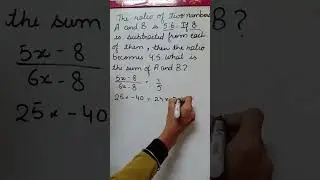 The ratio of two numbers
A and B is 5:6. If 8
is subtracted from each
of them, then the ratio
becomes 4:5. what is
the sum of A and B?
5x-8
6x-8
5x-8 = 4
6x-8 5
25x-40 = 24x-